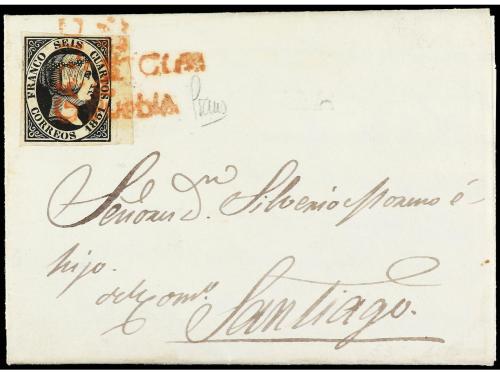 FRANCO SEIS CUARTOS
CORREOS 1851
Señores Dn. Silverio Moreno é
hijo.
del Como.
Santiago.